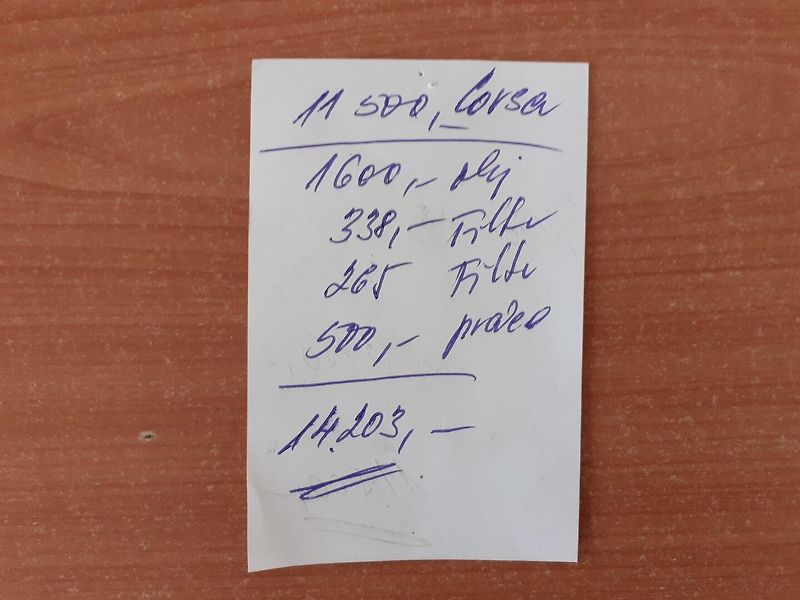 11 500,- Corsa
1600,- olej
338,- Filtr
265 Filtr
500,- práce
14.203,-